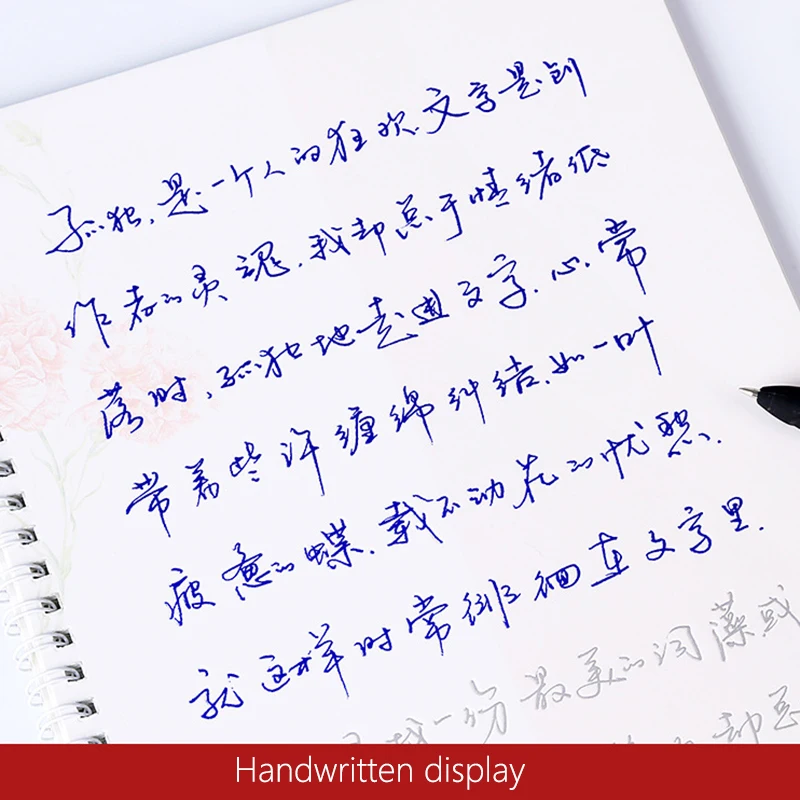 孤独,是一个人的狂欢,文字是创
作者的灵魂,我却总于情绪低
落时,孤独地走进文字,心,常
常着些许缠绵纠结,如一叶
疲惫的蝶,载不动花的忧愁.
就这样时常徘徊在文字里.
一份最美的词藻或
却总
Handwritten display